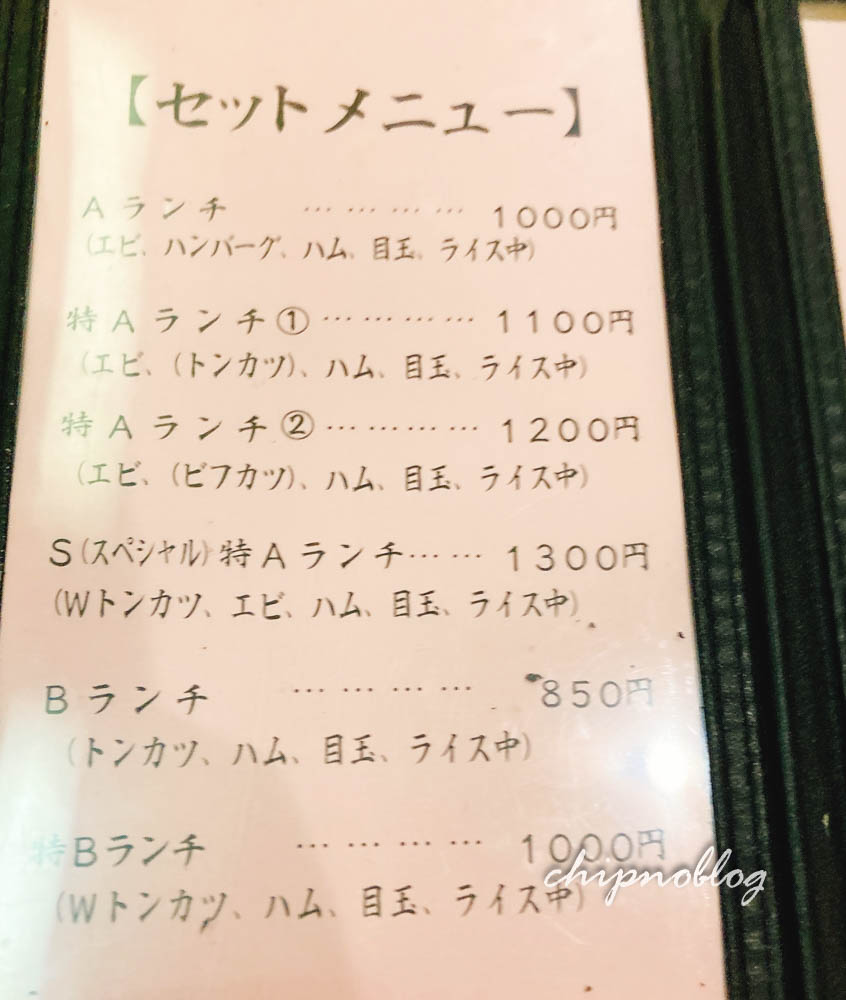 【セットメニュー】
Aランチ ………… 1000円
(エビ、ハンバーグ、ハム、目玉、ライス中)
特Aランチ①………… 1100円
(エビ、(トンカツ)、ハム、目玉、ライス中)
特Aランチ②………… 1200円
(エビ、(ビフカツ)、ハム、目玉、ライス中)
S(スペシャル)特Aランチ…… 1300円
(Wトンカツ、エビ、ハム、目玉、ライス中)
Bランチ ………… 850円
(トンカツ、ハム、目玉、ライス中)
特Bランチ ………… 1000円
(Wトンカツ、ハム、目玉、ライス中)
chipnoblog